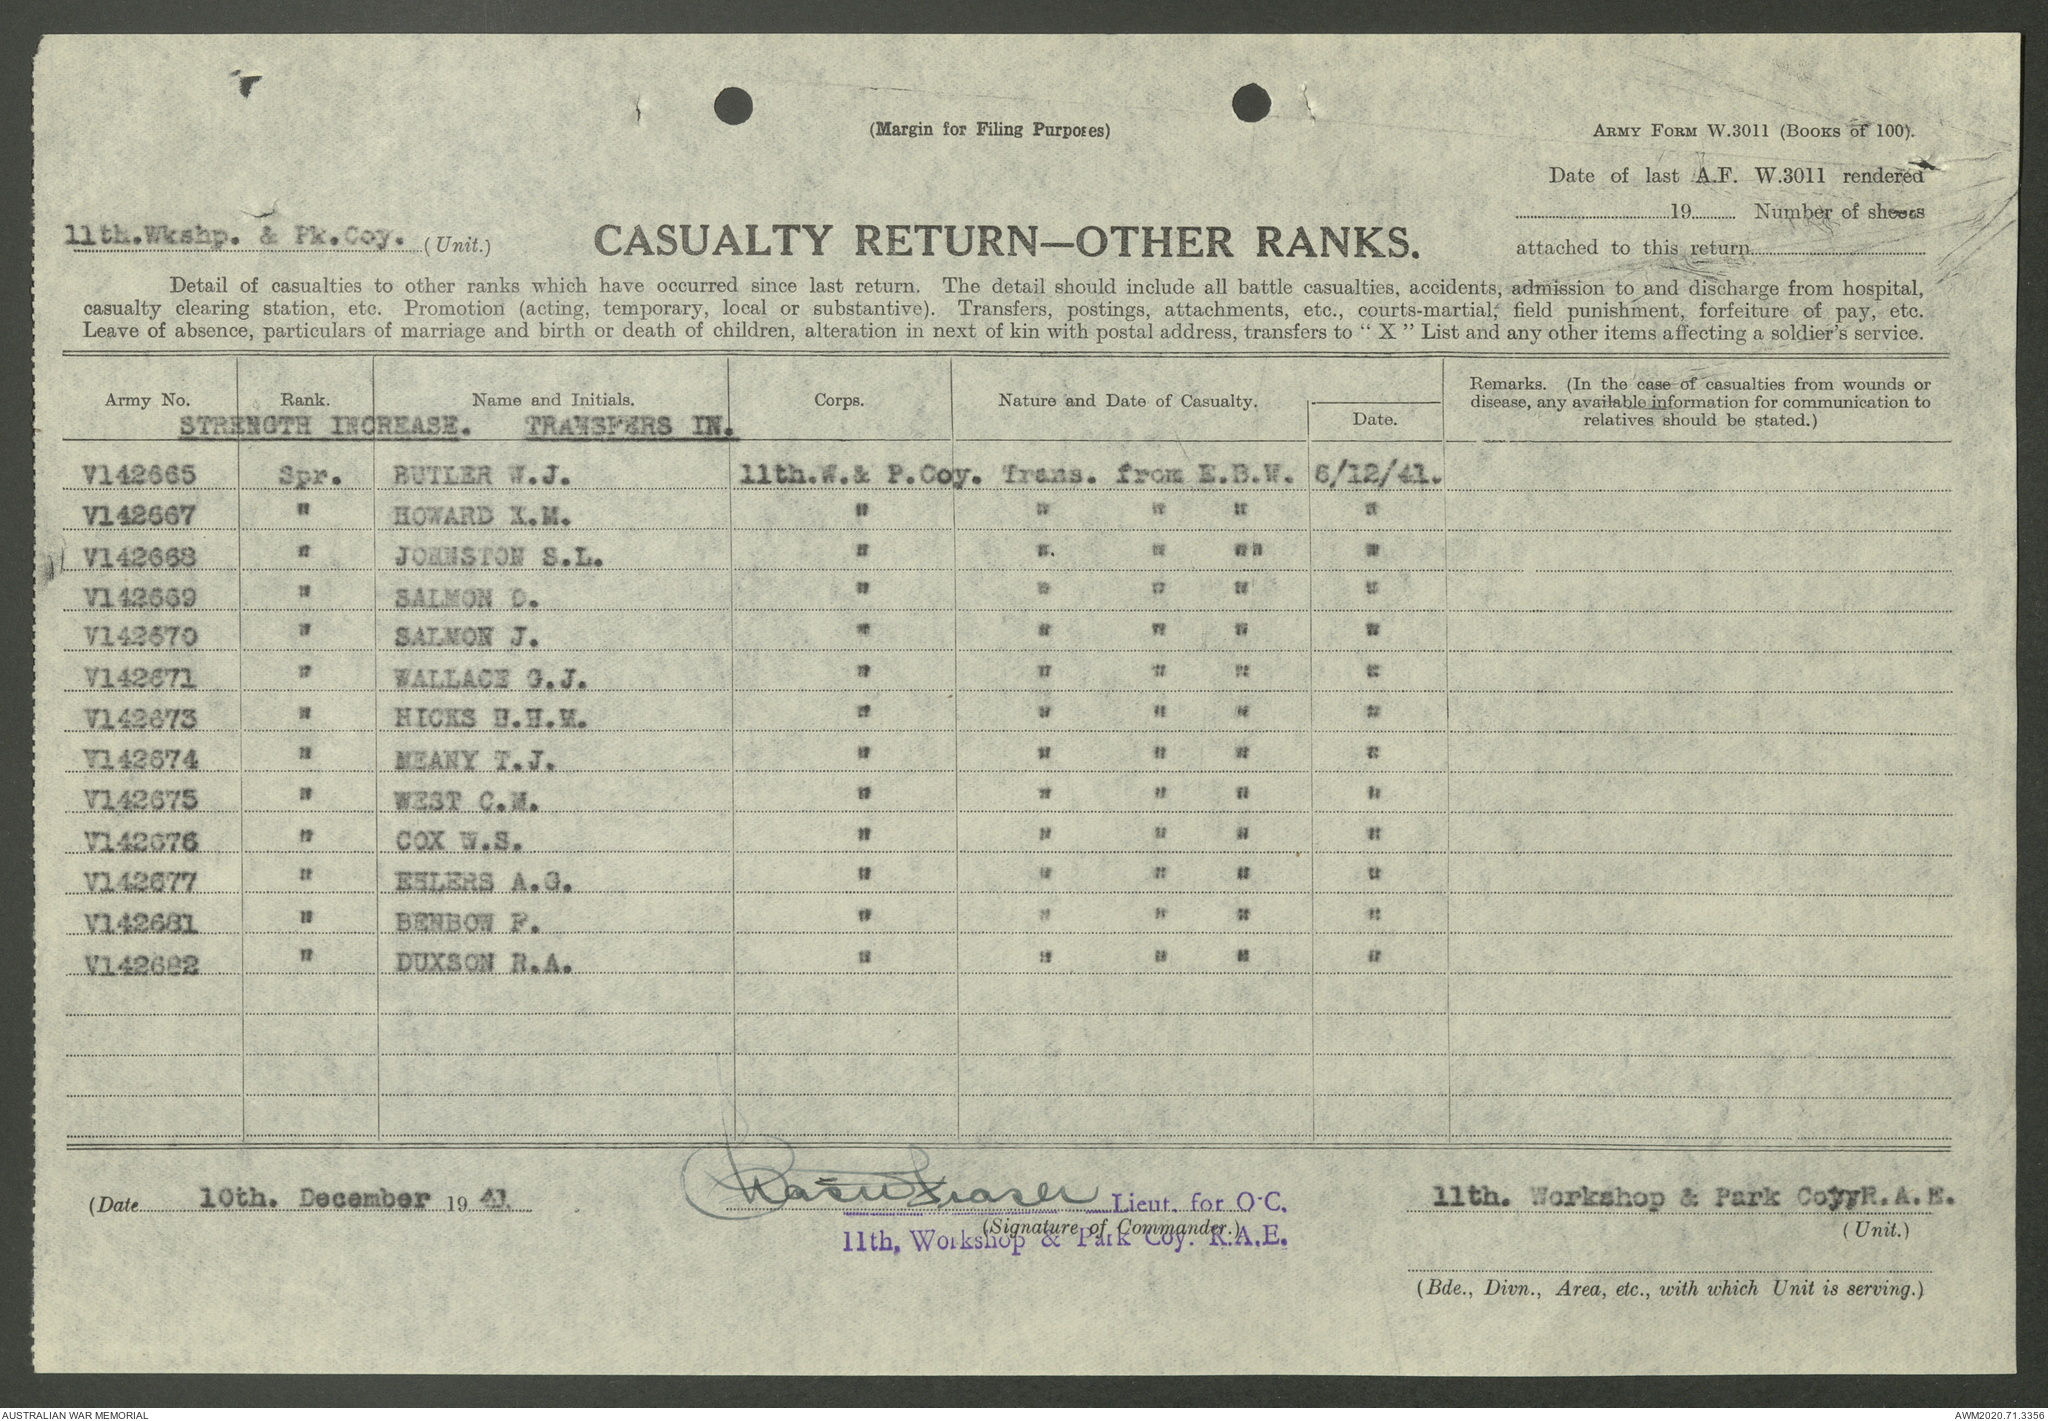 (Margin for Filing Purposes)
ARMY FORM W.3011 (BOOKS of 100).
Date of last A.F. W.3011 rendered
19 Number of sheets
attached to this return
11th.Wkshp. & Pk.Coy. (Unit.)
CASUALTY RETURN—OTHER RANKS.
Detail of casualties to other ranks which have occurred since last return. The detail should include all battle casualties, accidents, admission to and discharge from hospital,
casualty clearing station, etc. Promotion (acting, temporary, local or substantive). Transfers, postings, attachments, etc., courts-martial, field punishment, forfeiture of pay, etc.
Leave of absence, particulars of marriage and birth or death of children, alteration in next of kin with postal address, transfers to " X " List and any other items affecting a soldier's service.
Army No. Rank. Name and Initials. Corps. Nature and Date of Casualty. Date. Remarks. (In the case of casualties from wounds or
disease, any available information for communication to
relatives should be stated.)
STRENGTH INCREASE. TRANSFERS IN.
V142665 Spr. BUTLER W.J. 11th.W.& P.Coy. Trans. from E.B.W. 6/12/41.
V142667 " HOWARD K.M. " " " " "
V142668 " JOHNSTON S.L. " ". " "" "
V142669 " SALMON O. " " " " "
V142670 " SALMON J. " " " " "
V142671 " WALLACE G.J. " " " " "
V142673 " HICKS H.H.M. " " " " "
V142674 " MEANY T.J. " " " " "
V142675 " WEST C.M. " " " " "
V142676 " COX W.S. " " " " "
V142677 " EHLERS A.G. " " " " "
V142681 " BENBOW F. " " " " "
V142682 " DUXSON R.A. " " " " "
(Date 10th. December 19 41.
Fraser Lieut. for O.C.
(Signature of Commander.)
11th. Workshop & Park Coy. R.A.E.
11th. Workshop & Park Coy, R.A.E.
(Unit.)
(Bde., Divn., Area, etc., with which Unit is serving.)
AUSTRALIAN WAR MEMORIAL
AWM2020.71.3356